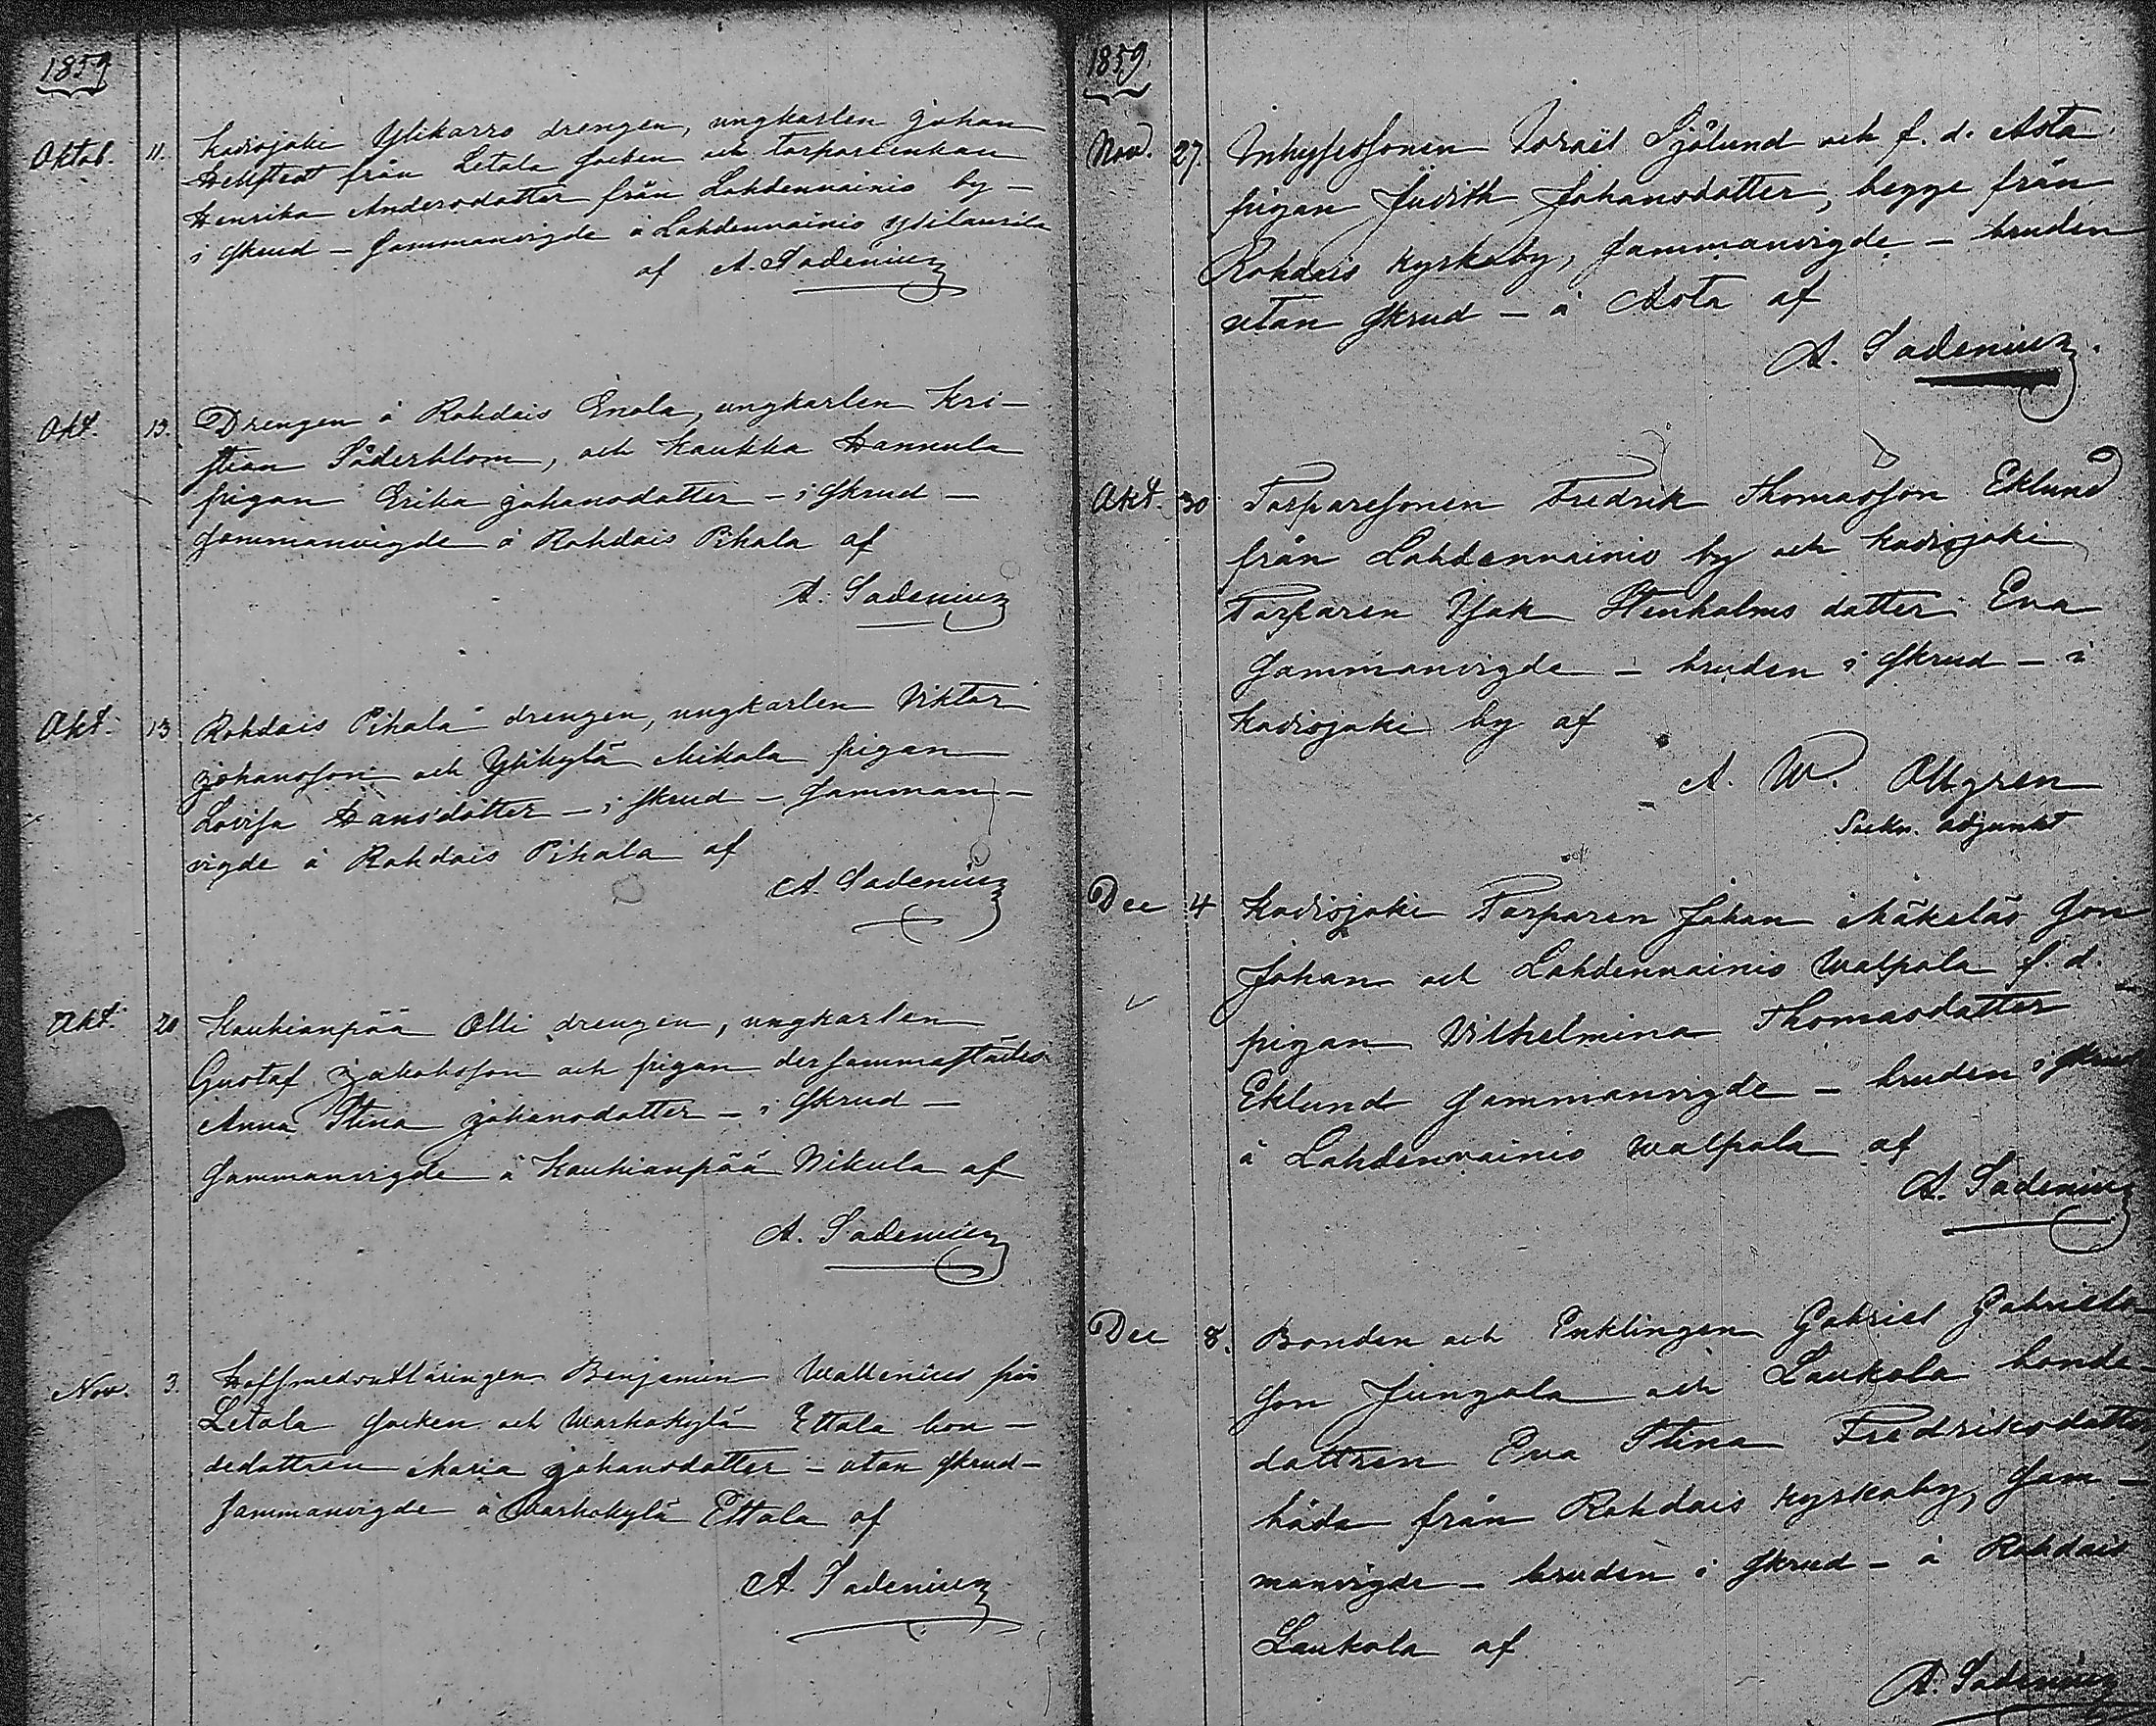 1859
Oktob. 11. Kadisjoki Ylikarro drengen, ungkarlen Johan
Hellstedt från Letala socken och torparenkan
Henrika Andersdotter från Lahdenvainio by —
i skrud — sammanvigde å Lahdenvainio Ylilaurila
af A. Sadenius
Okt. 13. Drengen å Rohdais Enola, ungkarlen Kri-
stian Söderblom, och Kaukka Hannula
pigan Erika Johansdotter — i skrud —
sammanvigde å Rohdais Pihala af
A. Sadenius
Okt. 13 Rohdais Pihala drengen, ungkarlen Viktor
Johansson och Ylikylä Mikola pigan
Lovisa Hansdotter — i skrud — samman-
vigde å Rohdais Pihala af
A. Sadenius
Okt. 20. Kauhianpää Olli drengen, ungkarlen
Gustaf Jakobsson och pigan dersammastädes
Anna Stina Johansdotter — i skrud —
sammanvigde å Kauhianpää Nikula af
A. Sadenius
Nov. 3. Benjamin Wallenius från
Letala socken och Warhokylä Ettala bon-
dedottren Maria Johansdotter — utan skrud —
sammanvigde å Warhokylä Ettala af
A. Sadenius
1859.
Nov. 27. Inhysessonen Israël Sjölund och f. d. Asta
pigan Judith Johansdotter, begge från
Rohdais kyrkoby, sammanvigde — bruden
utan skrud — å Asta af
A. Sadenius.
Okt. 30 Torparesonen Fredrik Thomasson Eklund
från Lahdenvainio by och Kadisjoki
Torparen Isak Stenholms dotter Eva
sammanvigde — bruden i skrud — i
Kadisjoki by af
A. W. Ollgren
Sockn. adjunkt
Dec 4 Kadisjoki Torparen Johan Mäkeläs son
Johan och Lahdenvainio Walpola f. d.
pigan Vilhelmina Thomasdotter
Eklund sammanvigde — bruden i skrud
å Lahdenvainio Walpola af
A. Sadenius
Dec 8. Bonden och Enklingen Gabriel Gabriels-
son Jungola och Laukola bonde-
dottren Eva Stina Fredriksdotter,
båda från Rohdais kyrkoby, sam-
manvigde — bruden i skrud — å Rohdais
Laukola af
A. Sadenius